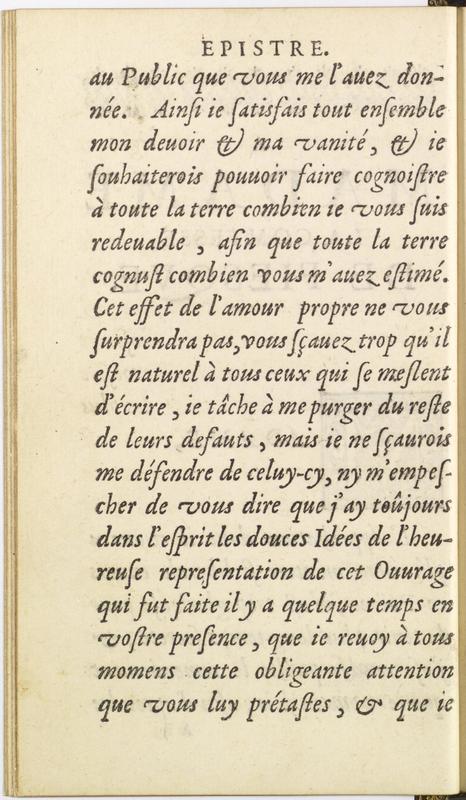 EPISTRE.
au Public que vous me l'auez don-
née. Ainſi ie ſatisfais tout enſemble
mon deuoir & ma vanité, & ie
ſouhaiterois pouuoir faire cognoiſtre
à toute la terre combien ie vous ſuis
redeuable, afin que toute la terre
cognuſt combien vous m'auez eſtimé.
Cet effet de l'amour propre ne vous
ſurprendra pas, vous ſçauez trop qu'il
eſt naturel à tous ceux qui ſe meſlent
d'écrire, ie tâche à me purger du reſte
de leurs defauts, mais ie ne ſçaurois
me défendre de celuy-cy, ny m'empeſ-
cher de vous dire que j'ay toûjours
dans l'eſprit les douces Idées de l'heu-
reuſe repreſentation de cet Ouurage
qui fut faite il y a quelque temps en
voſtre preſence, que ie reuoy à tous
momens cette obligeante attention
que vous luy prétaſtes, & que ie